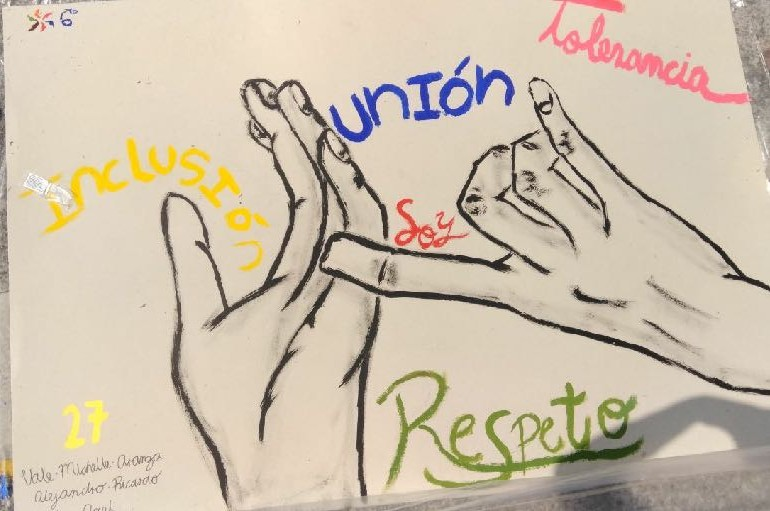 6°
Tolerancia
Unión
Inclusión
Soy
Respeto
27
Vale - Michelle - Aranga
Alejandro -